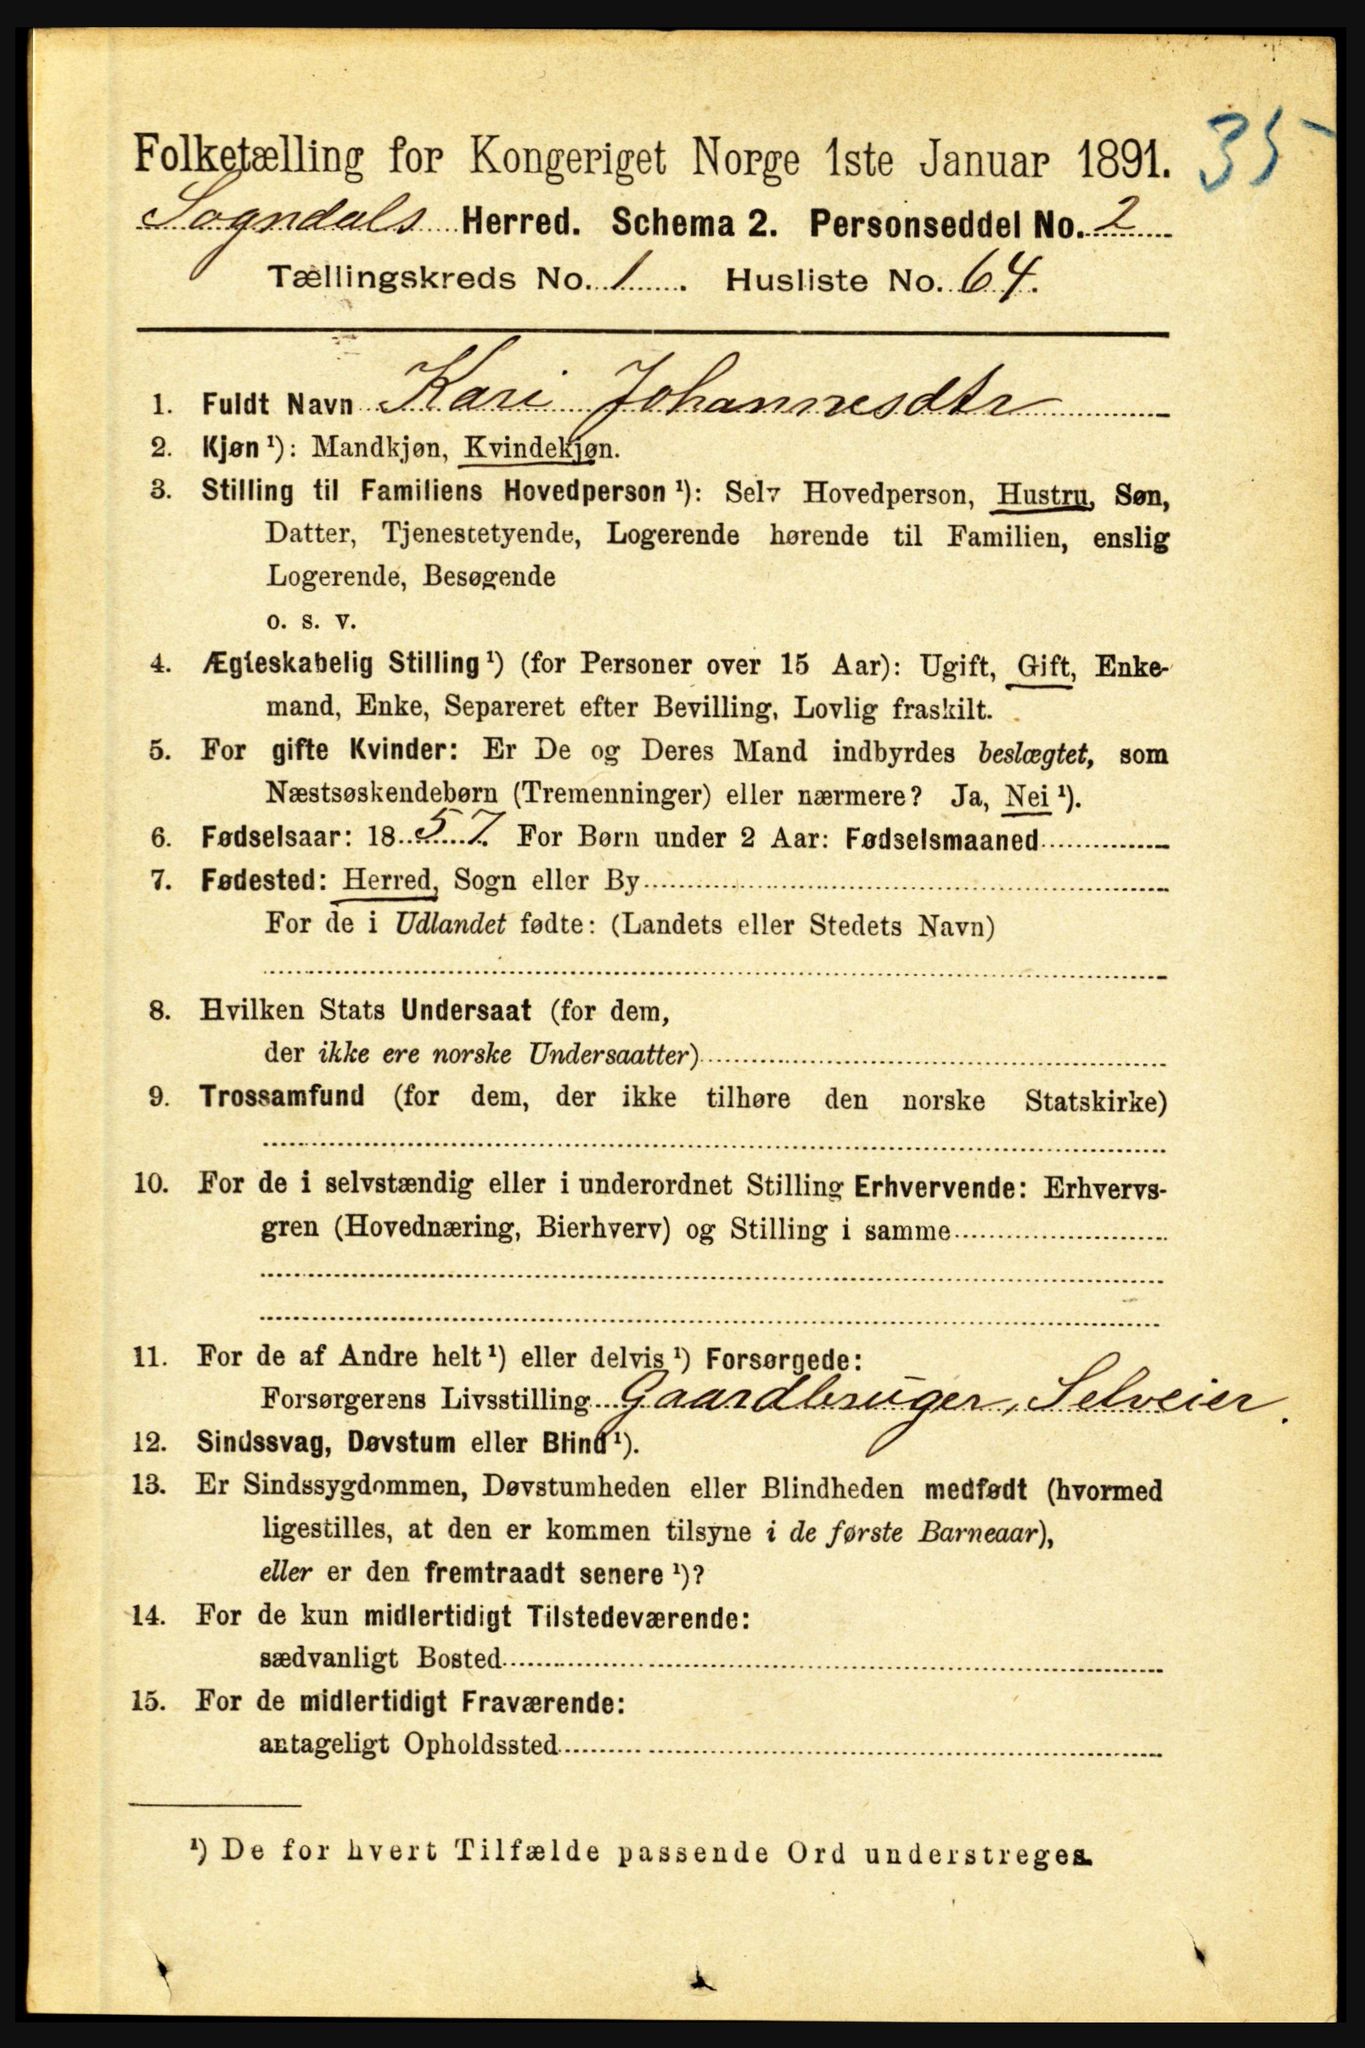 Folketælling for Kongeriget Norge 1ste Januar 1891. 35
Sogndals Herred. Schema 2. Personseddel No. 2
Tællingskreds No. 1. Husliste No. 64.
1. Fuldt Navn Kari Johannesdtr
2. Kjøn ¹): Mandkjøn, Kvindekjøn.
3. Stilling til Familiens Hovedperson ¹): Selv Hovedperson, Hustru, Søn,
Datter, Tjenestetyende, Logerende hørende til Familien, enslig
Logerende, Besøgende
o. s. v.
4. Ægteskabelig Stilling ¹) (for Personer over 15 Aar): Ugift, Gift, Enke-
mand, Enke, Separeret efter Bevilling, Lovlig fraskilt.
5. For gifte Kvinder: Er De og Deres Mand indbyrdes beslægtet, som
Næstsøskendebørn (Tremenninger) eller nærmere? Ja, Nei ¹).
6. Fødselsaar: 1857. For Børn under 2 Aar: Fødselsmaaned
7. Fødested: Herred, Sogn eller By
For de i Udlandet fødte: (Landets eller Stedets Navn)
8. Hvilken Stats Undersaat (for dem,
der ikke ere norske Undersaatter)
9. Trossamfund (for dem, der ikke tilhøre den norske Statskirke)
10. For de i selvstændig eller i underordnet Stilling Erhvervende: Erhvervs-
gren (Hovednæring, Bierhverv) og Stilling i samme
11. For de af Andre helt ¹) eller delvis ¹) Forsørgede:
Forsørgerens Livsstilling Gaardbruger, Selveier.
12. Sindssvag, Døvstum eller Blind ¹).
13. Er Sindssygdommen, Døvstumheden eller Blindheden medfødt (hvormed
ligestilles, at den er kommen tilsyne i de første Barneaar),
eller er den fremtraadt senere ¹)?
14. For de kun midlertidigt Tilstedeværende:
sædvanligt Bosted
15. For de midlertidigt Fraværende:
antageligt Opholdssted
¹) De for hvert Tilfælde passende Ord understreges.